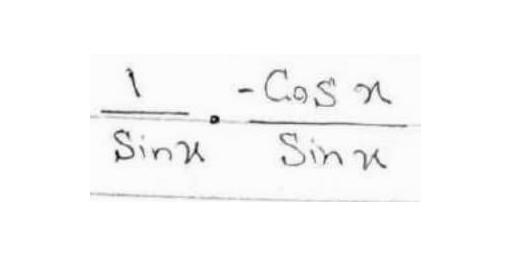 \frac{1}{\sin x} \cdot \frac{-\cos x}{\sin x}